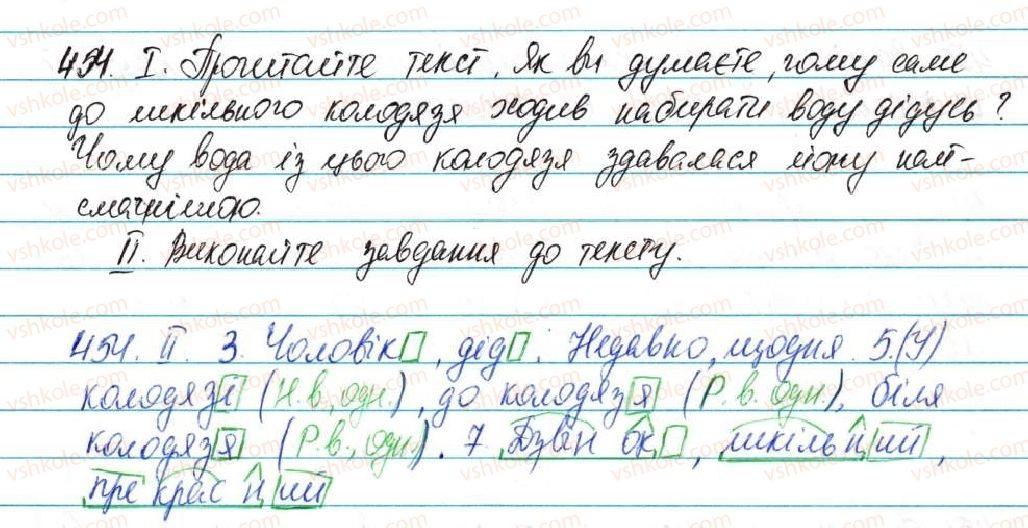 454. I. Прочитайте текст. Як ви думаєте, чому саме
до шкільного колодязя ходив набирати воду дідусь?
Чому вода із цього колодязя здавалася йому най-
смачнішою.
II. Виконайте завдання до тексту.
454. II. 3. Чоловік, дід. Недавно, щодня 5.(У)
колодязі (Н.в., одн.), до колодязя (Р.в. одн.), біля
колодязя (Р.в., одн). 7 Дзвін ок, шкільний,
прекрасний